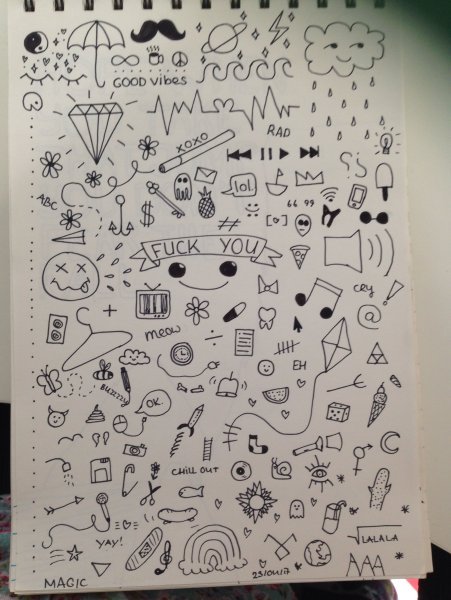 GOOD vibes
XOXO
RAD
ABC
lol.
$
#
“ ”
FUCK YOU
cry !
@
+
meow
÷
EH
BUZZZZZ
OK.
CHILL OUT
YAY!
√LALALA
AAA
MAGIC
23/01/17